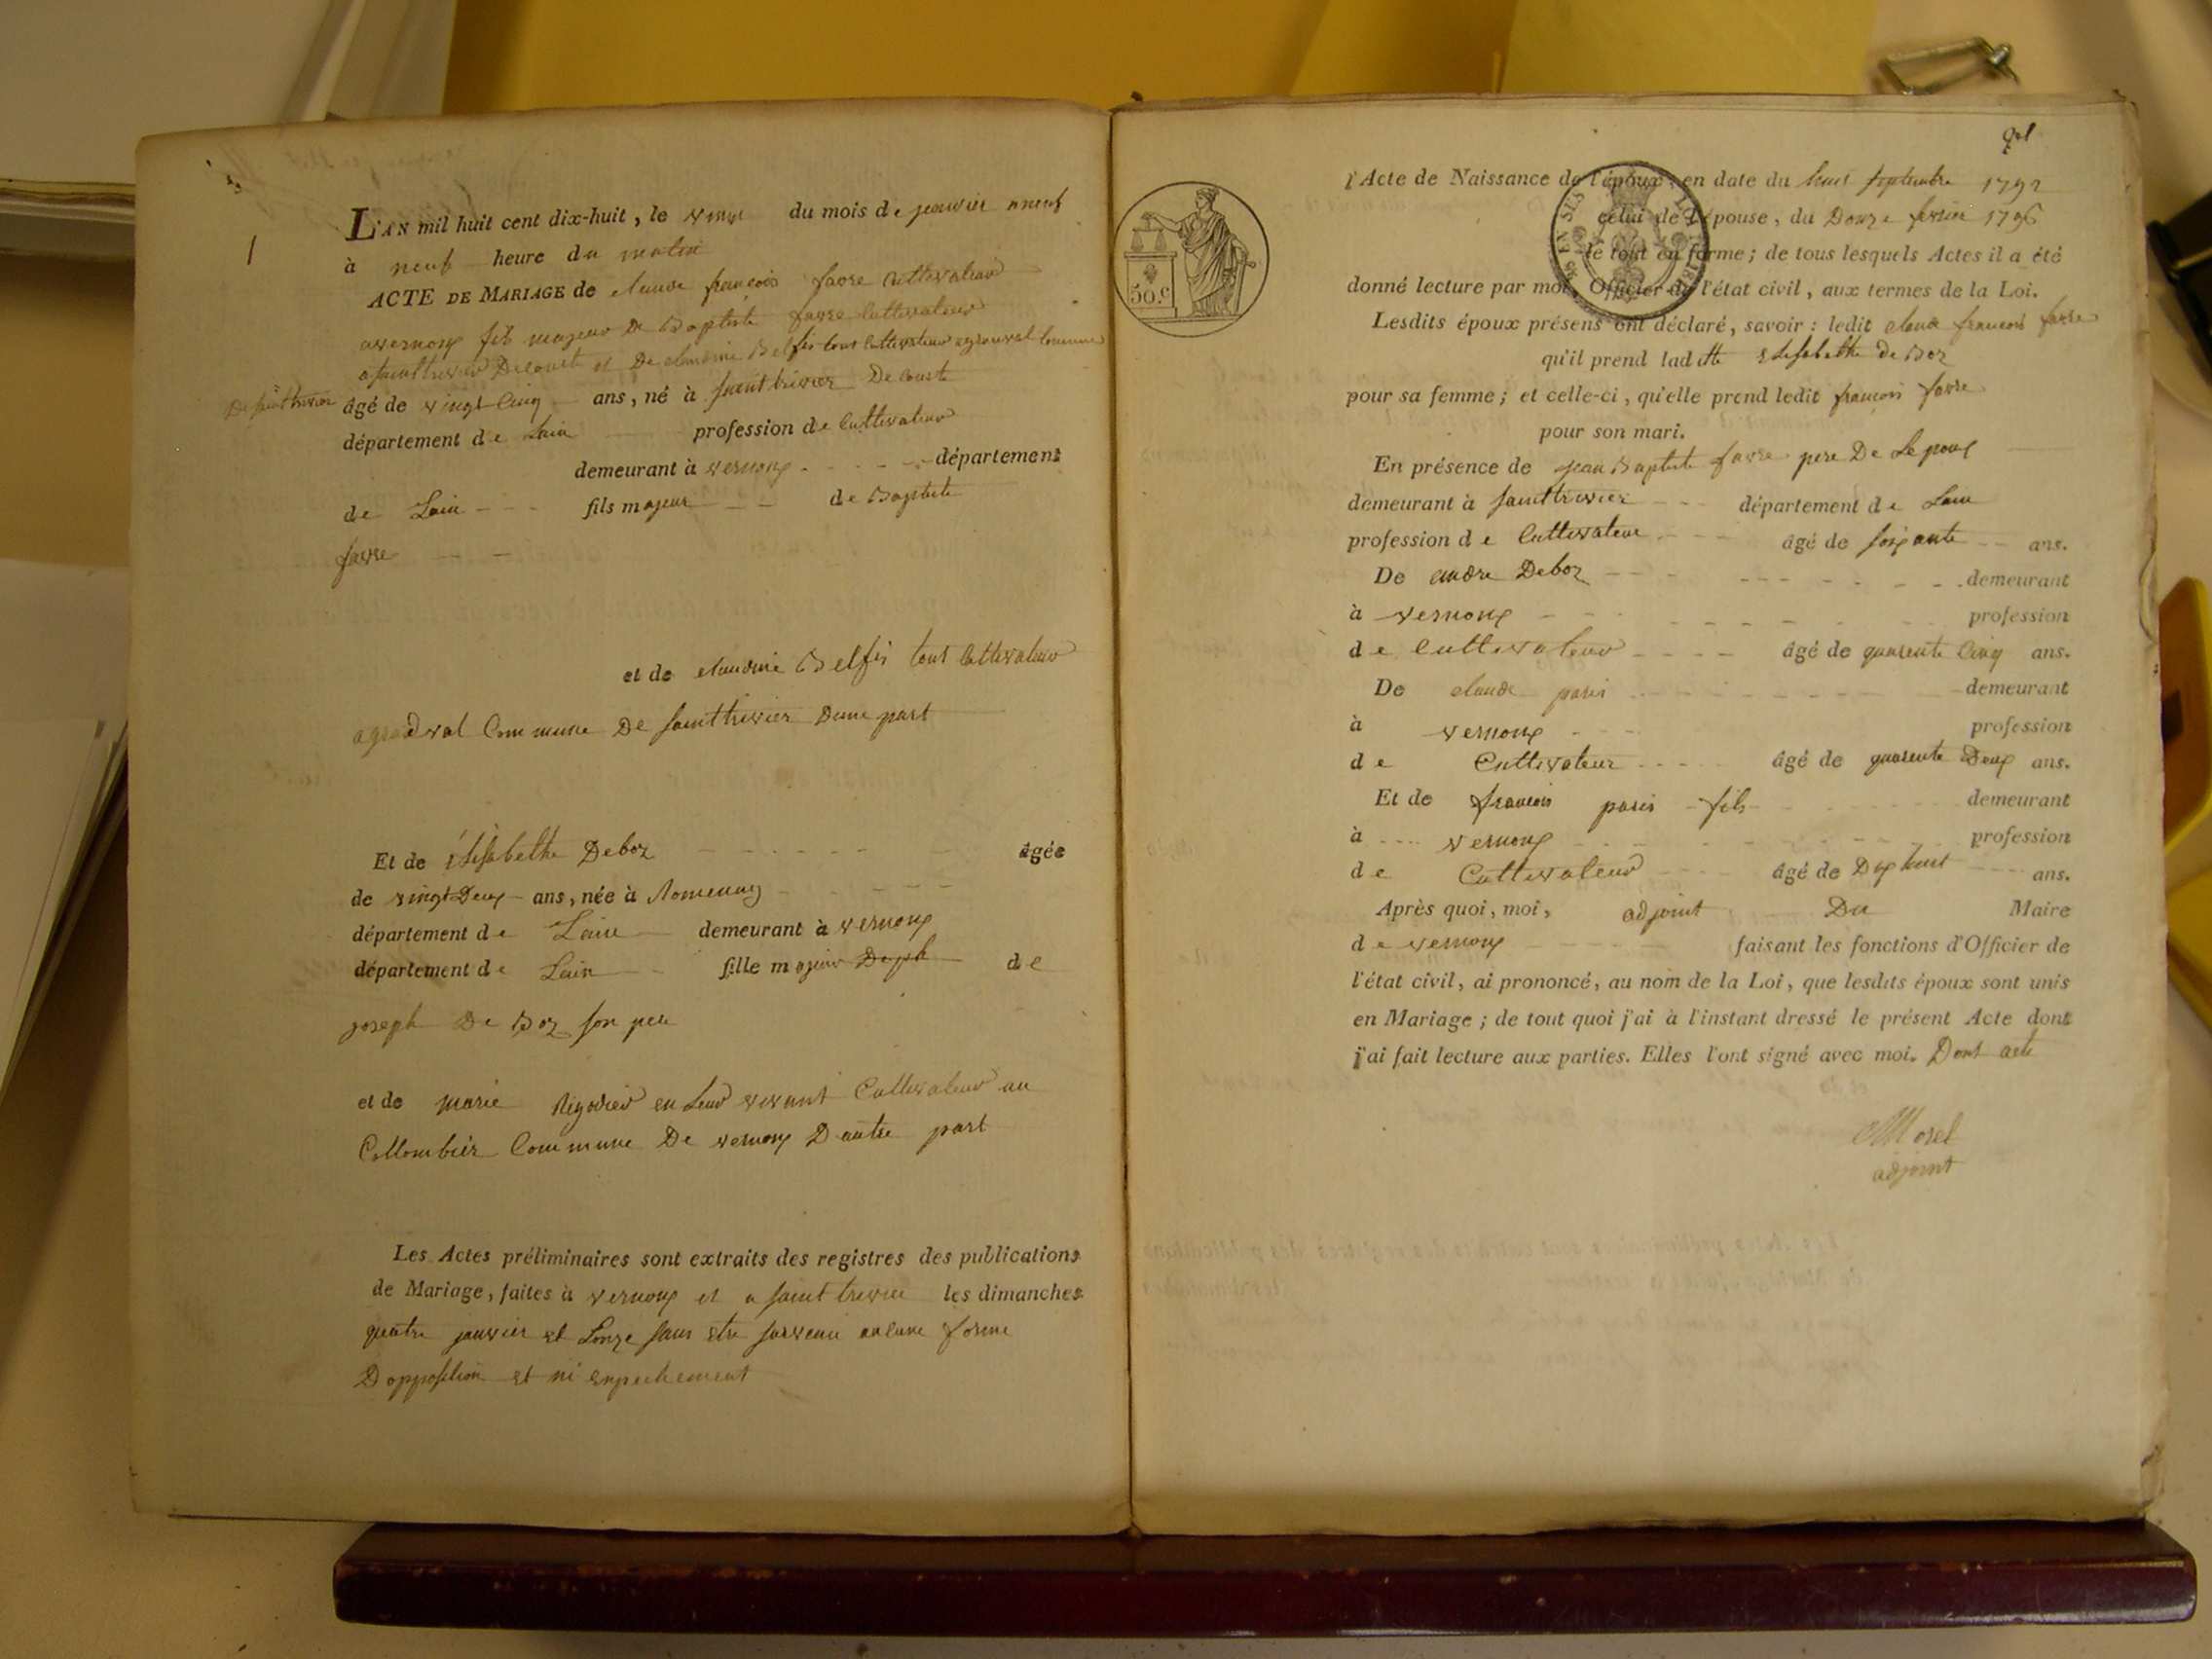 1
L'AN mil huit cent dix-huit, le vingt du mois de janvier a neuf
à neuf heure du matin
ACTE DE MARIAGE de claude françois favre Cultivateur
a vernoux fils majeur De Baptiste favre Cultivateur
a saint trivier De Courte et De claudine Belfis tous Cultivateur a grandval Commune
De saint trivier
âgé de vingt Cinq ans, né à saint trivier De Courte
département de Lain profession de Cultivateur
demeurant à vernoux département
de Lain fils majeur de Baptiste
favre
et de claudine Belfis tous Cultivateur
a grandval Commune De saint trivier Dune part
Et de Elisabethe Deboz âgée
de vingt Deux ans, née à Romenay
département de Lain demeurant à vernoux
département de Lain fille majeur de
joseph De Boz son pere
et de marie en Leur vivant Cultivateur au
Collombier Commune De vernoux D autre part
Les Actes préliminaires sont extraits des registres des publications
de Mariage, faites à vernoux et a saint trivier les dimanches
quatre janvier et Lonze sans etre survenu aucune forme
D opposition et ni enpechement
50.c
l'Acte de Naissance de l'époux, en date du huit septembre 1792
celui de l'épouse, du Douze fevrier 1796
le tout en forme; de tous lesquels Actes il a été
donné lecture par moi, Officier de l'état civil, aux termes de la Loi.
Lesdits époux présens ont déclaré, savoir: ledit claude francois favre
qu'il prend laditte Elisabethe de Boz
pour sa femme; et celle-ci, qu'elle prend ledit françois favre
pour son mari.
En présence de jean Baptiste favre pere De Lepoux
demeurant à saint trivier département de Lain
profession de Cultivateur âgé de soixante ans.
De andre Deboz demeurant
à vernoux profession
de Cultivateur âgé de quarente Cinq ans.
De claude paris demeurant
à vernoux profession
de Cultivateur âgé de quarente Deux ans.
Et de francois paris fils demeurant
à vernoux profession
de Cultivateur âgé de Dix huit ans.
Après quoi, moi, adjoint Du Maire
de vernoux faisant les fonctions d'Officier de
l'état civil, ai prononcé, au nom de la Loi, que lesdits époux sont unis
en Mariage; de tout quoi j'ai à l'instant dressé le présent Acte dont
j'ai fait lecture aux parties. Elles l'ont signé avec moi. Dont acte
Morel
adjoint